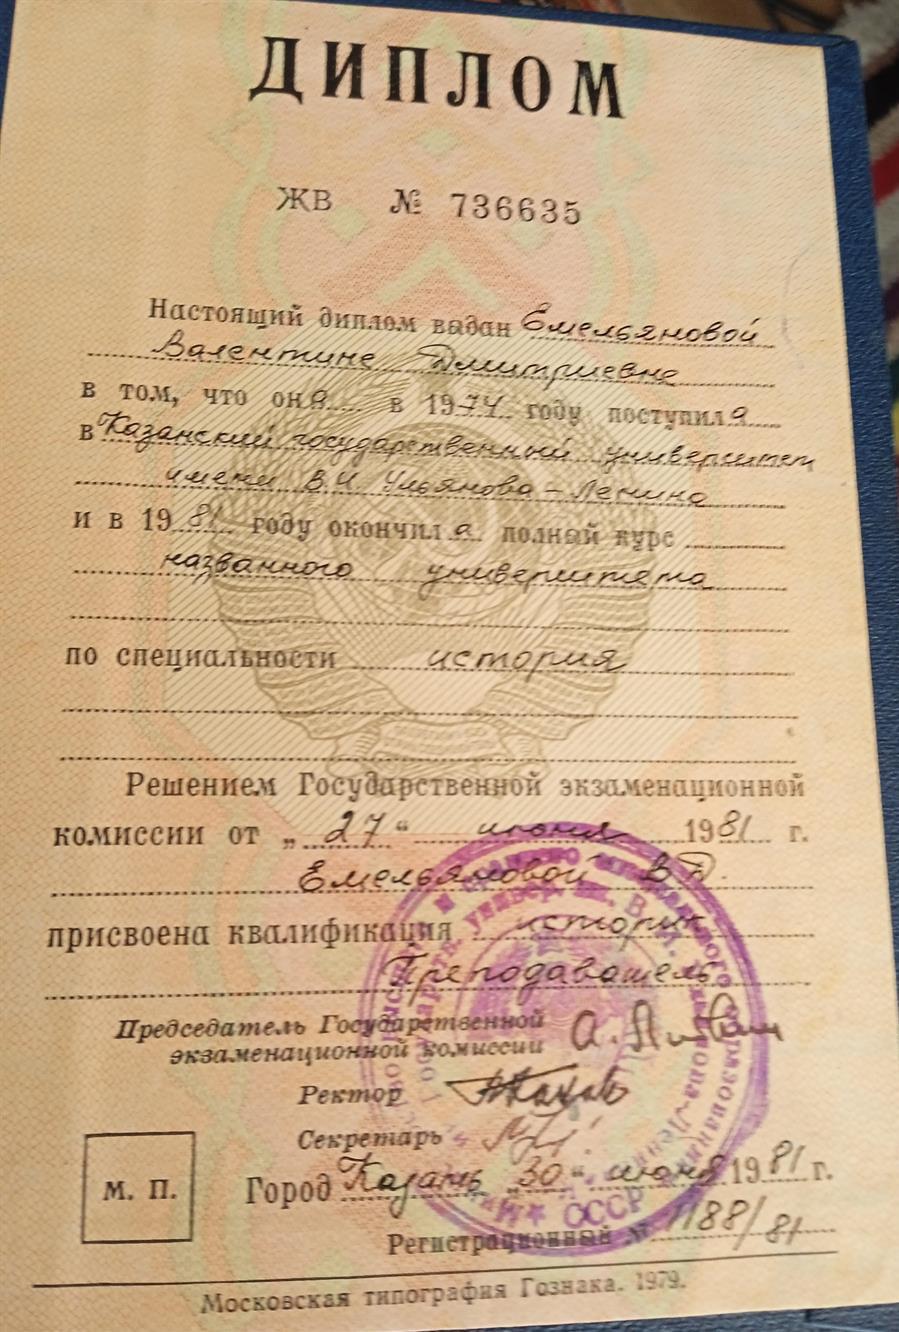 ДИПЛОМ
ЖВ № 736635
Настоящий диплом выдан Емельяновой
Валентине Дмитриевне
в том, что она в 1974 году поступила
в Казанский государственный университет
имени В.И Ульянова-Ленина
и в 1981 году окончила полный курс
названного университета
по специальности история
Решением Государственной экзаменационной
комиссии от „27“ июня 1981 г.
Емельяновой В.Д.
присвоена квалификация историк
Преподаватель
Председатель Государственной
экзаменационной комиссии
Ректор
Секретарь
М. П.
Город Казань „30“ июня 1981 г.
Регистрационный № 1188/81
СССР
Московская типография Гознака. 1979.